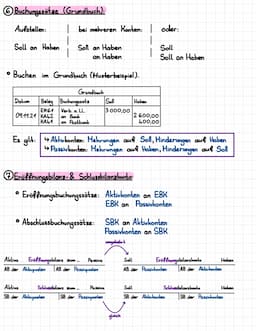 ⑥ Buchungssätze (Grundbuch):
Aufstellen: bei mehreren Konten: oder:
Soll an Haben Soll an Haben Soll
an Haben Soll an Haben
• Buchen im Grundbuch (Musterbeispiel):
Grundbuch
Datum Beleg Buchungssatz Soll Haben
ER61 Verb. a. LL 3000,00
09.11.21 KA62 an Bank 2600,00
KA61 an Postbank 400,00
Es gilt: ↳ Aktivkonten: Mehrungen auf Soll, Minderungen auf Haben
↳ Passivkonten: Mehrungen auf Haben, Minderungen auf Soll
⑦ Eröffnungsbilanz- & Schlussbilanzkonto
• Eröffnungsbuchungssätze: Aktivkonten an EBK
EBK an Passivkonten
• Abschlussbuchungssätze: SBK an Aktivkonten
Passivkonten an SBK
Aktiva Eröffnungsbilanz zum Passiva Soll Eröffnungsbilanzkonto Haben
AB der Aktivposten AB der Passivposten AB der Passivkonten AB der Aktivkonten
Aktiva Schlussbilanz zum Passiva Soll Schlussbilanzkonto Haben
SB der Aktivposten SB der Passivposten SB der Aktivkonten SB der Passivkonten
gleich